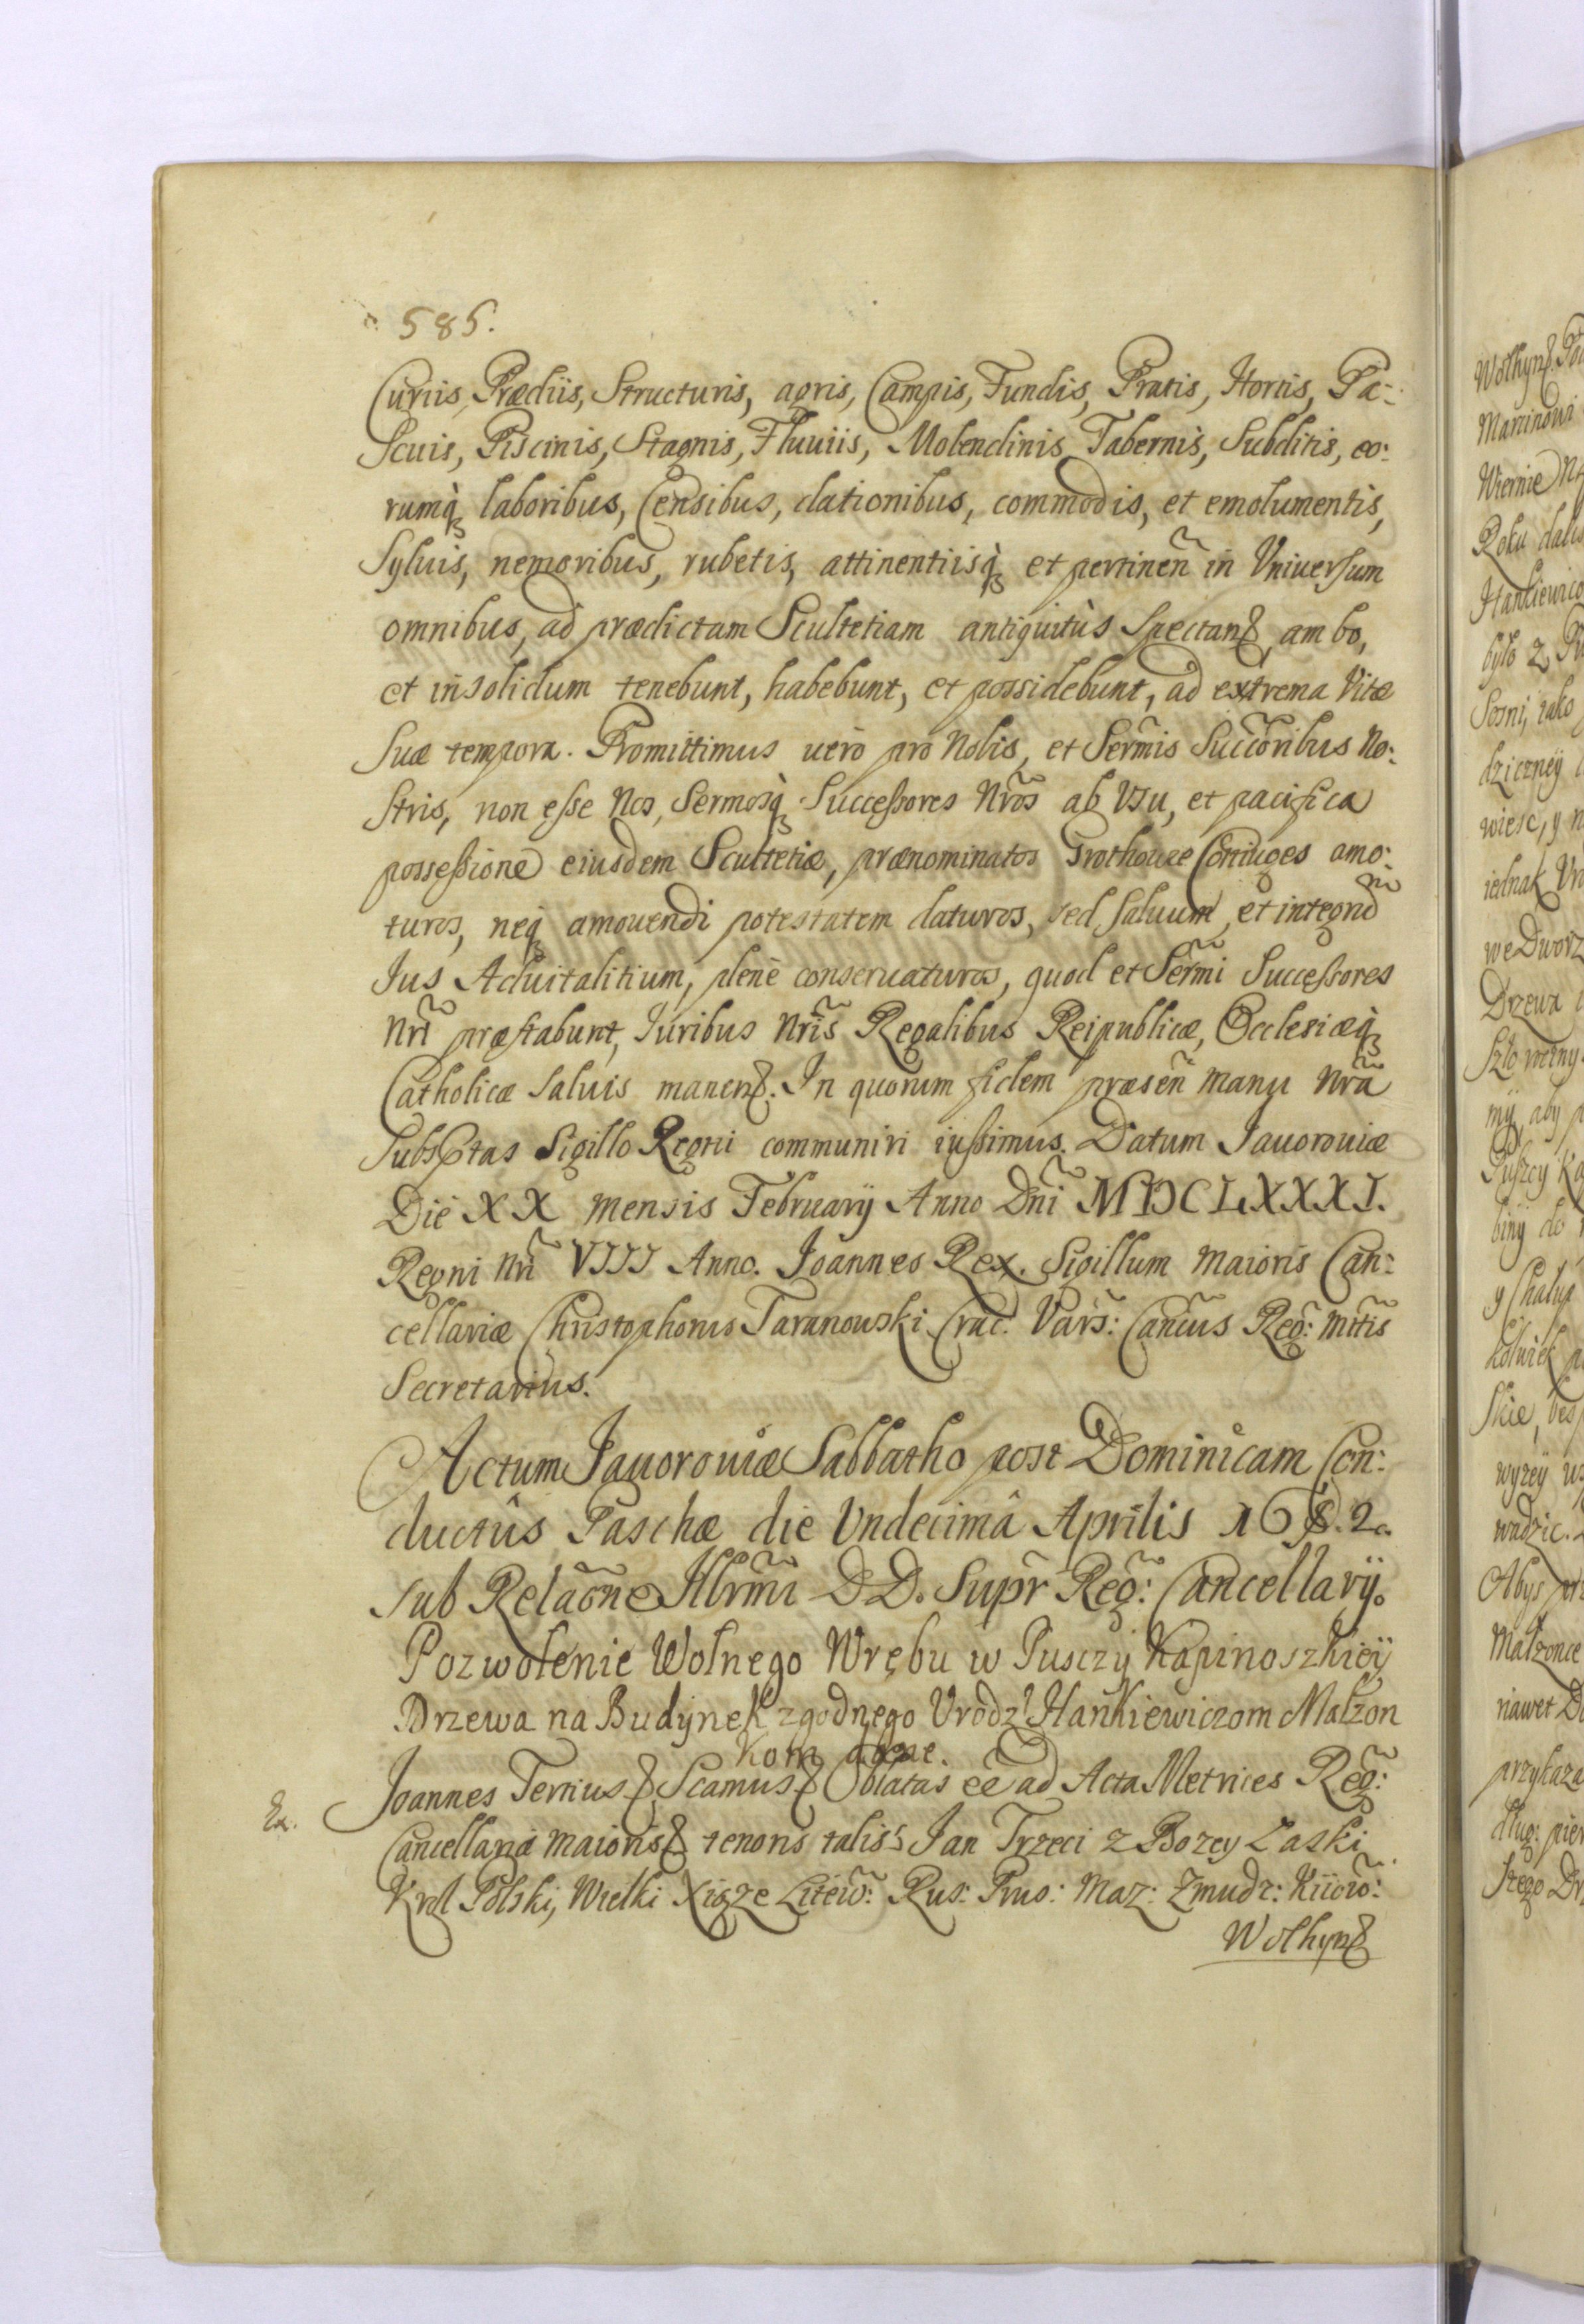 585.
Curiis, Prædiis, Structuris, agris, Campis, Fundis, Pratis, Hortis, Pa-
scuis, Piscinis, Stagnis, Fluuiis, Molendinis, Tabernis, Subditis, eo:
rumq̀ laboribus, Censibus, dationibus, commodis, et emolumentis,
Syluis, nemoribus, rubetis, attinentiisq̀ et pertineñ in Vniuersum
omnibus, ad prædictam Scultetiam antiquitùs Spectan&, ambo,
et insolidum tenebunt, habebunt, et possidebunt, ad extrema Vitæ
Suæ tempora. Promittimus uerò pro Nobis, et Serm̃is Succõribus No:
stris, non esse Nos, Sermosq̀ Successores Nr̃os ab Vsu, et pacifica
possessione eiusdem Scultetiæ, prænominatos Grothouae Coniuges amo:
turos, neq amouendi potestatem daturos, sed saluum, et integrũ
Ius Aduitalitium, plenè conseruaturos, quod et Serm̃i Successores
Nr̃i præstabunt, Iuribus Nr̃is Regalibus Reipublicæ, Ecclesiæq̀
Catholicæ saluis manen&. In quorum fidem præseñ manu Nr̃a
Subsptas Sigillo Regni communiri iussimus. Datum Iauorouiæ
Die XX mensis February Anno Dñi MDCLXXXI.
Regni Nr̃i VIII Anno. Joannes Rex. Sigillum maioris Can:
cellariæ Christophorus Taranowski Crac. Vars: Cancus Reg: Mttis
Secretarius.
Actum Jauorouiæ Sabbatho post Dominicam Con:
ductûs Paschæ die Vndecimâ Aprilis 1682.
sub Relaõne Illrm̃i D D. Supr̃ Reg: Cancellarÿ.
Pozwolenie Wolnego Wrębu w Pusczy Kapinoszkieÿ
Drzewa na Budÿnek zgodnego Vrodz: Hankiewiczom Małzon
kom dane.
Ex.
Joannes Tertius & Scamus & Oblatas eẽ ad Acta Metrices Reg:
Cancellariæ maioris & tenoris talis: Jan Trzeci z Bozey Łaski
Krol Polski, Wielki Xiąze Litew̃: Rus: Prus: Maz: Zmudz: Kiiow̃:
Wołhyn&
Wołhyn&
Marcinowi
Wiernie
Roku
Hankiewico
było z
Sosni, iako
dziczneÿ
wiesc, y
iednak
we Dworz
Drzewa